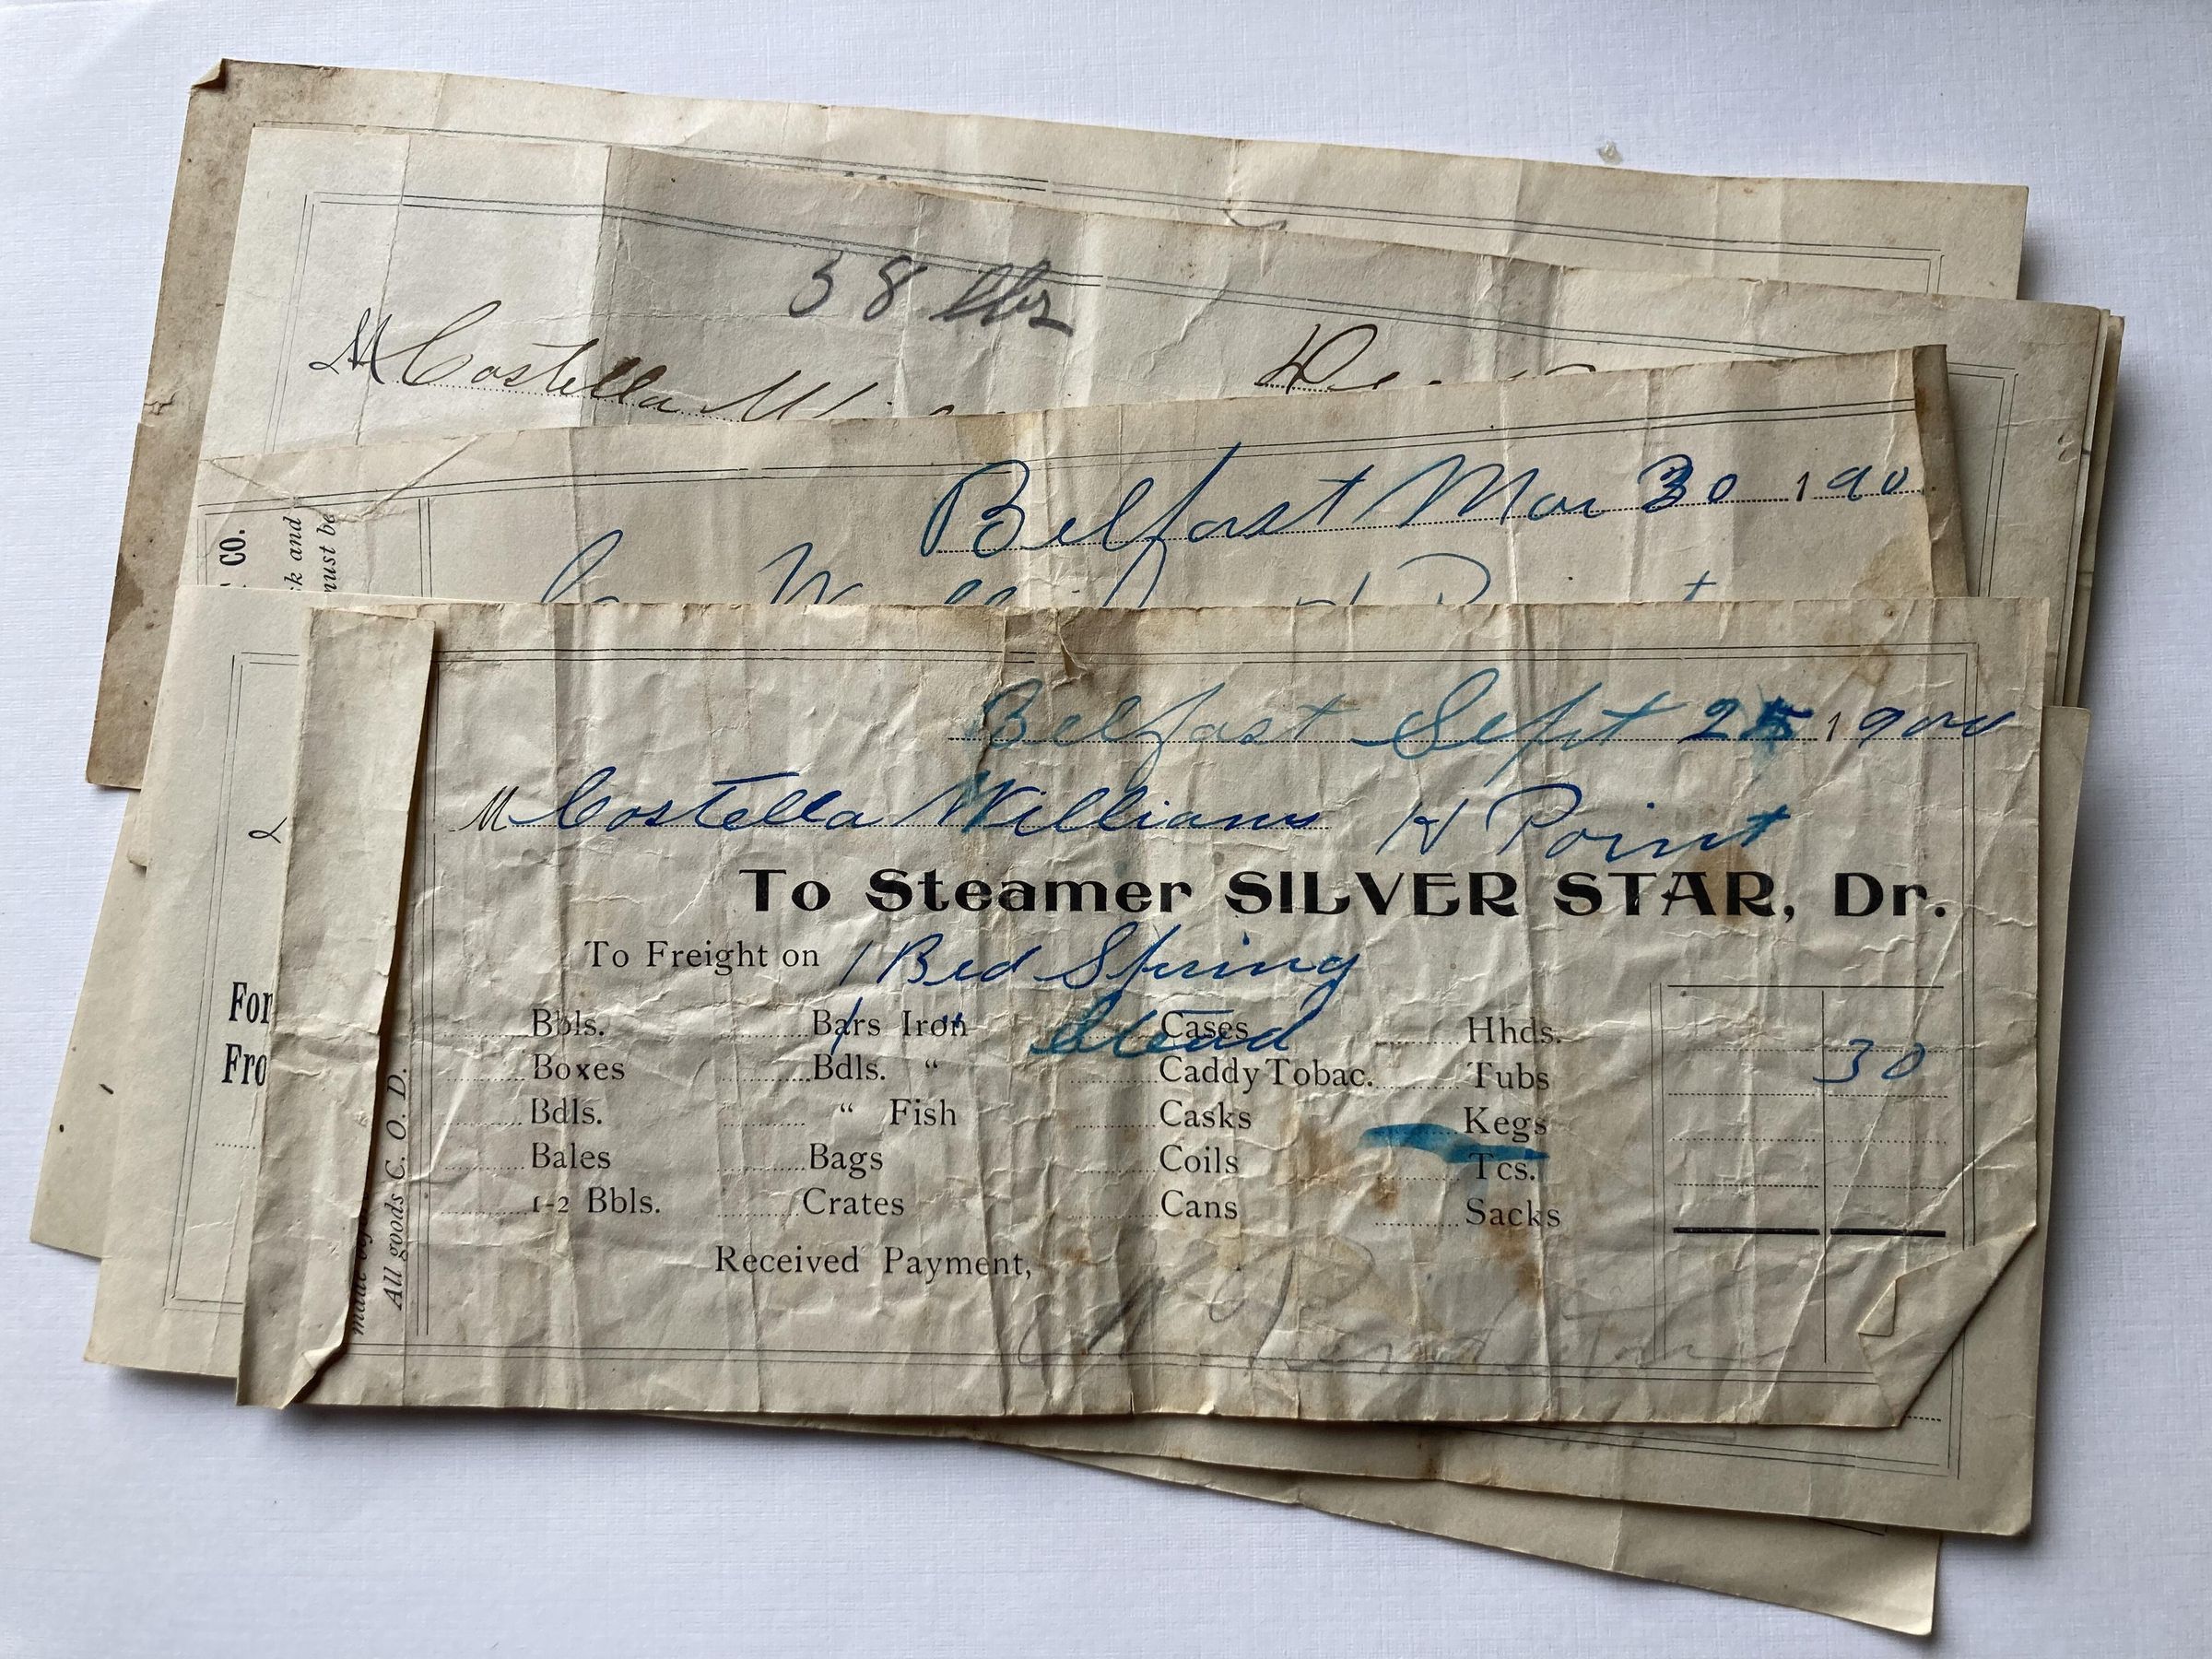 38 lbs
M Costella
Belfast Mar 30 190
CO.
k and
must be
Belfast Sept 25 1900
M Costella Williams H Point
To Steamer SILVER STAR, Dr.
To Freight on 1 Bed Spring
1 " Stead
Bbls. Bars Iron Cases Hhds.
Boxes Bdls. " Caddy Tobac. Tubs
Bdls. " Fish Casks Kegs
Bales Bags Coils Tcs.
1-2 Bbls. Crates Cans Sacks
30
Received Payment,
All goods C. O. D.
For
Fro